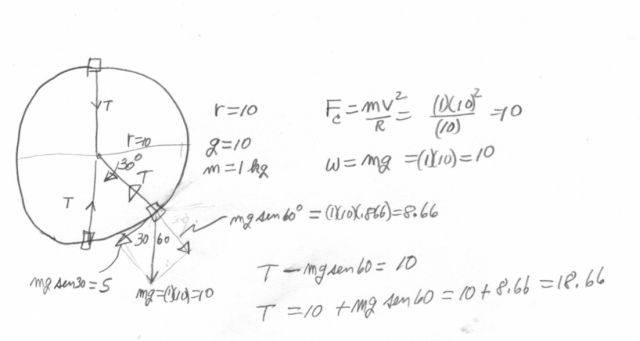 T
r=10
30°
T
T
30 60
mg sen30=5
mg=(1)(10)=10
r=10
g=10
m=1 kg
mg sen60°=(1)(10)(.866)=8.66
F_c=mv²/R=(1)(10)²/(10)=10
w=mg=(1)(10)=10
T-mgsen60=10
T=10+mg sen 60=10+8.66=18.66